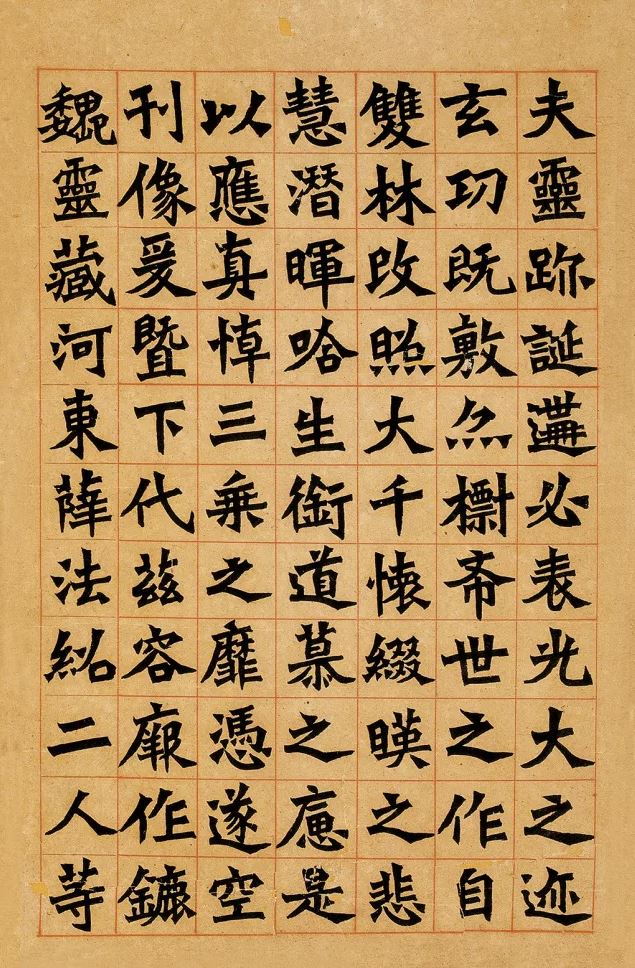 夫靈跡誕遘必表光大之迹
玄功既敷亦標希世之作自
雙林改照大千懷綴暎之悲
慧潛暉唅生銜道慕之是
以應真悼三乘之靡憑遂空
刊像爰暨下代茲容厥作鑣
魏靈藏河東薛法紹二人等